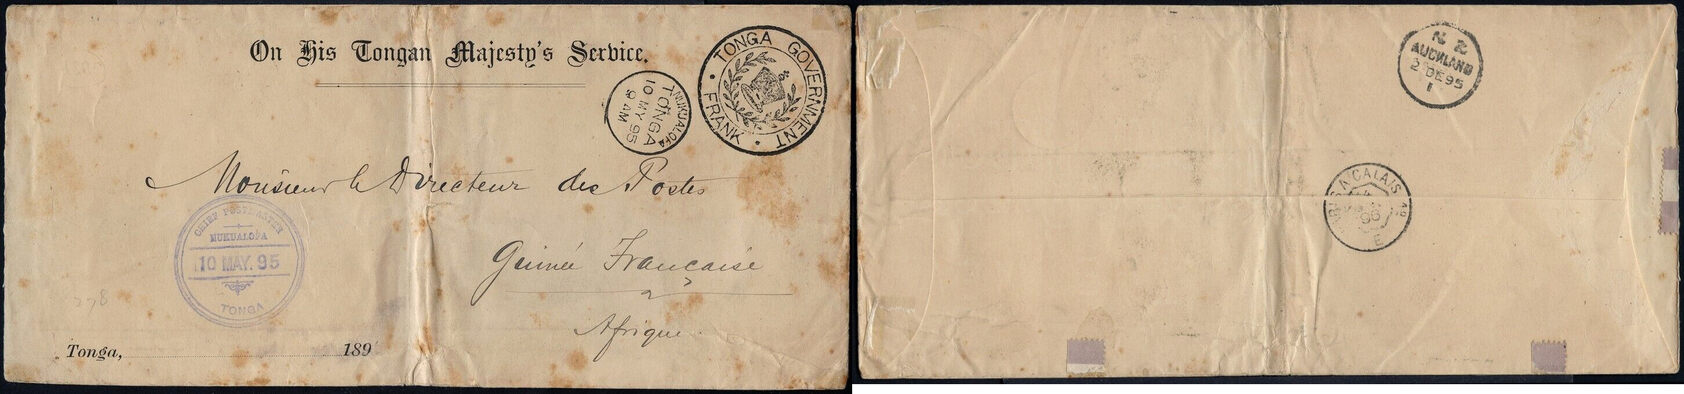 On His Tongan Majesty's Service.
TONGA GOVERNMENT
FRANK
NUKUALOFA
TONGA
10 MY 95
9 AM
Monsieur le Directeur des Postes
Guinée Française
Afrique
CHIEF POSTMASTER
NUKUALOFA
10 MAY. 95
TONGA
Tonga, 189
N Z
AUCKLAND
2 DE 95
1
A CALAIS
E